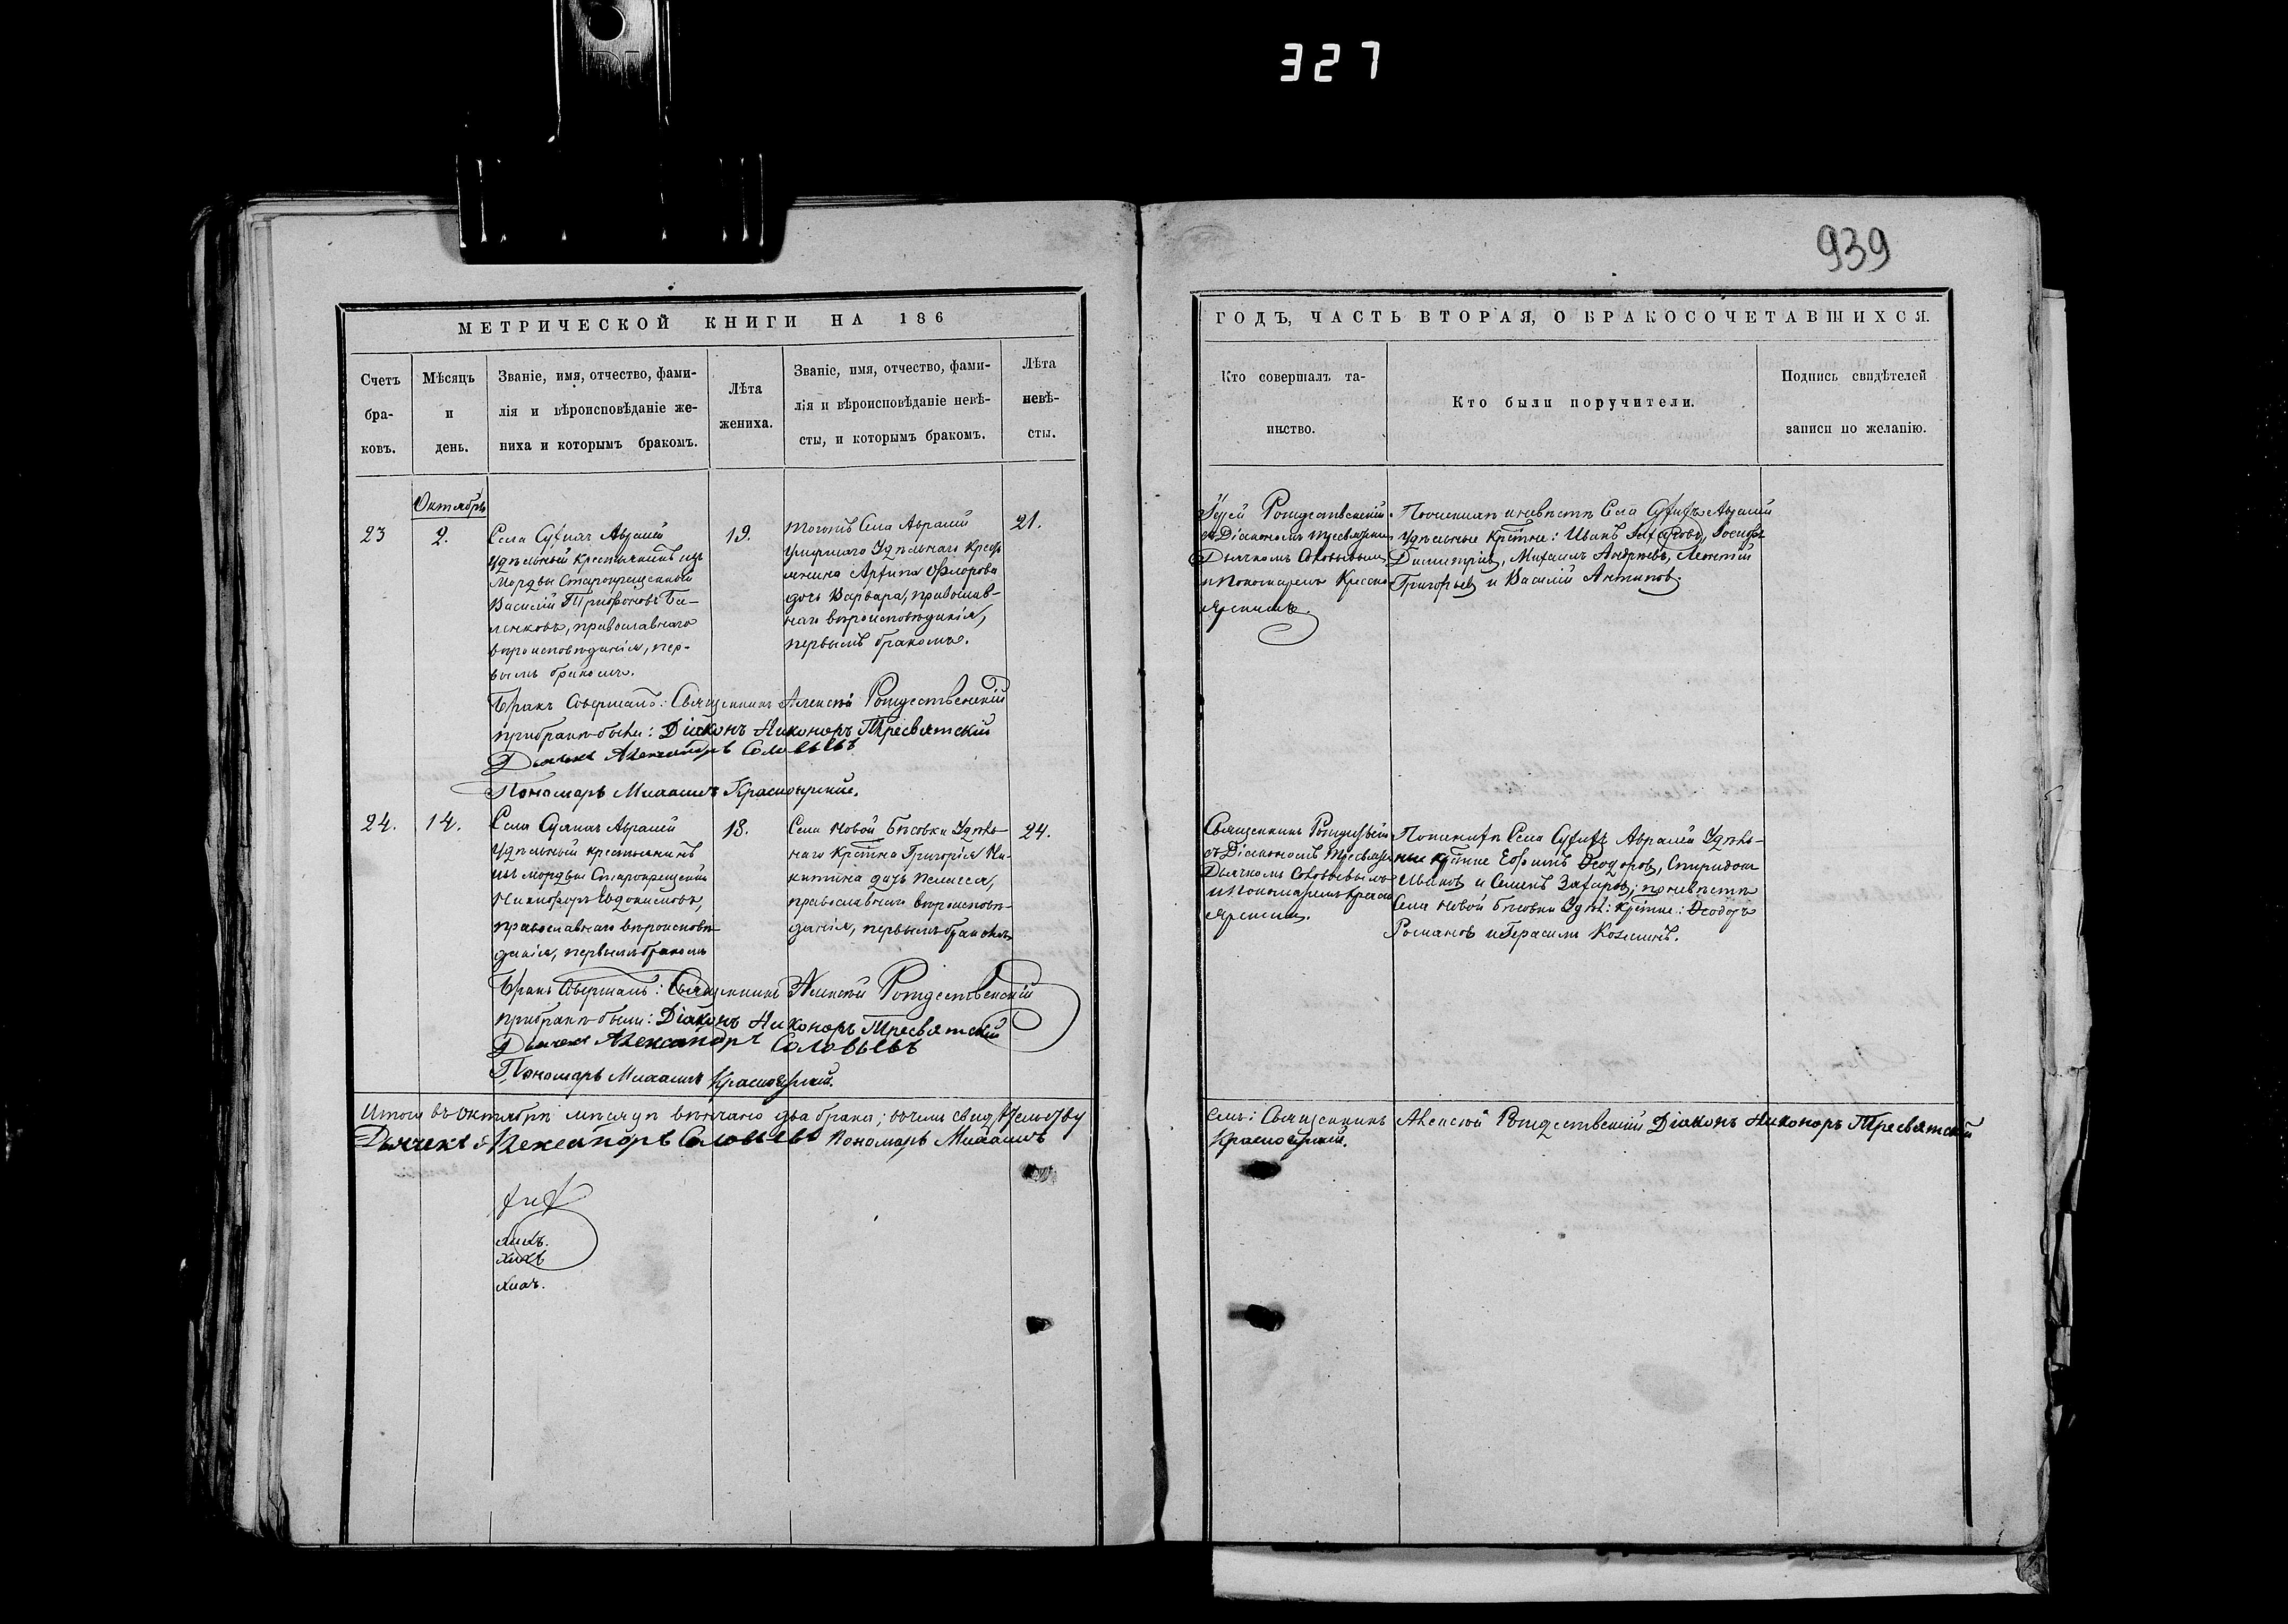 327
939
МЕТРИЧЕСКОЙ КНИГИ НА 186
ГОДЪ, ЧАСТЬ ВТОРАЯ, О БРАКОСОЧЕТАВШИХСЯ.
Счетъ
бра-
ковъ.
Мѣсяцъ
и
день.
Званіе, имя, отчество, фами-
лія и вѣроисповѣданіе же-
ниха и которымъ бракомъ.
Лѣта
жениха.
Званіе, имя, отчество, фами-
лія и вѣроисповѣданіе невѣ-
сты, и которымъ бракомъ.
Лѣта
невѣ-
сты.
Кто совершалъ та-
инство.
Кто были поручители.
Подпись свидѣтелей
записи по желанію.
Октябрь
23
2.
Села
удѣльный крестьянинъ изъ
Мордвы Старокрещенной
Василій Трифоновъ Бе-
ленковъ, православнаго
вѣроисповѣданія, пер-
вымъ бракомъ.
19.
тогожъ Села
умершаго Удѣльнаго Кресть
янина Архипа Флорова
дочь Варвара, православ-
наго вѣроисповѣданія,
первымъ бракомъ.
21.
Іерей Рождественскій
съ Діакономъ Тресвятским
Дьячкомъ Соловьевымъ
и Пономаремъ Красно
ярскимъ.
По женихѣ и невѣстѣ Села
удѣльные Крестне: Иванъ Захаровъ, Іосифъ
Димитріев, Михаилъ Андреевъ, Леонтій
Григорьев и Василій Антипов.
Бракъ Совершалъ: Священникъ Алексѣй Рождественскій
при бракѣ были: Діаконъ Никаноръ Тресвятскій
Дьячекъ Александръ Соловьевъ
Пономарь Михаилъ Красноярскій.
24.
14.
Села
Удѣльный крестьянинъ
изъ мордвы Старокрещеной
Никифоръ Евдокимовъ,
православнаго вѣроисповѣ
данія, первымъ бракомъ
18.
Села Новой Бѣсовки Удѣль-
наго Крестна Григорія Ни-
китина дочь
православнаго вѣроисповѣ-
данія, первымъ бракомъ
24.
Священникъ Рождествен
съ Діакономъ Тресвятск
Дьячкомъ Соловьевымъ
и Пономаремъ Красно
ярским.
По женихѣ Села Удѣль-
ные Крестне Ефимъ Ѳеодоров, Спиридон
Иванов и Семенъ Захаров; по невѣстѣ
Села Новой Бѣсовки Удѣл: Крестне: Ѳеодоръ
Романов и Герасим Козминъ.
Бракъ Совершалъ: Священникъ Алексѣй Рождественскій
при бракѣ были: Діаконъ Никаноръ Тресвятскій
Дьячекъ Александръ Соловьевъ
Пономарь Михаилъ Красноярскій.
Итого въ Октябрѣ мѣсяцѣ вѣнчано два брака; въ чемъ свидѣтельству
емъ: Священникъ Алексѣй Рождественскій Діаконъ Никаноръ Тресвятскій
Дьячекъ Александръ Соловьевъ Пономарь Михаилъ
Красноярскій.